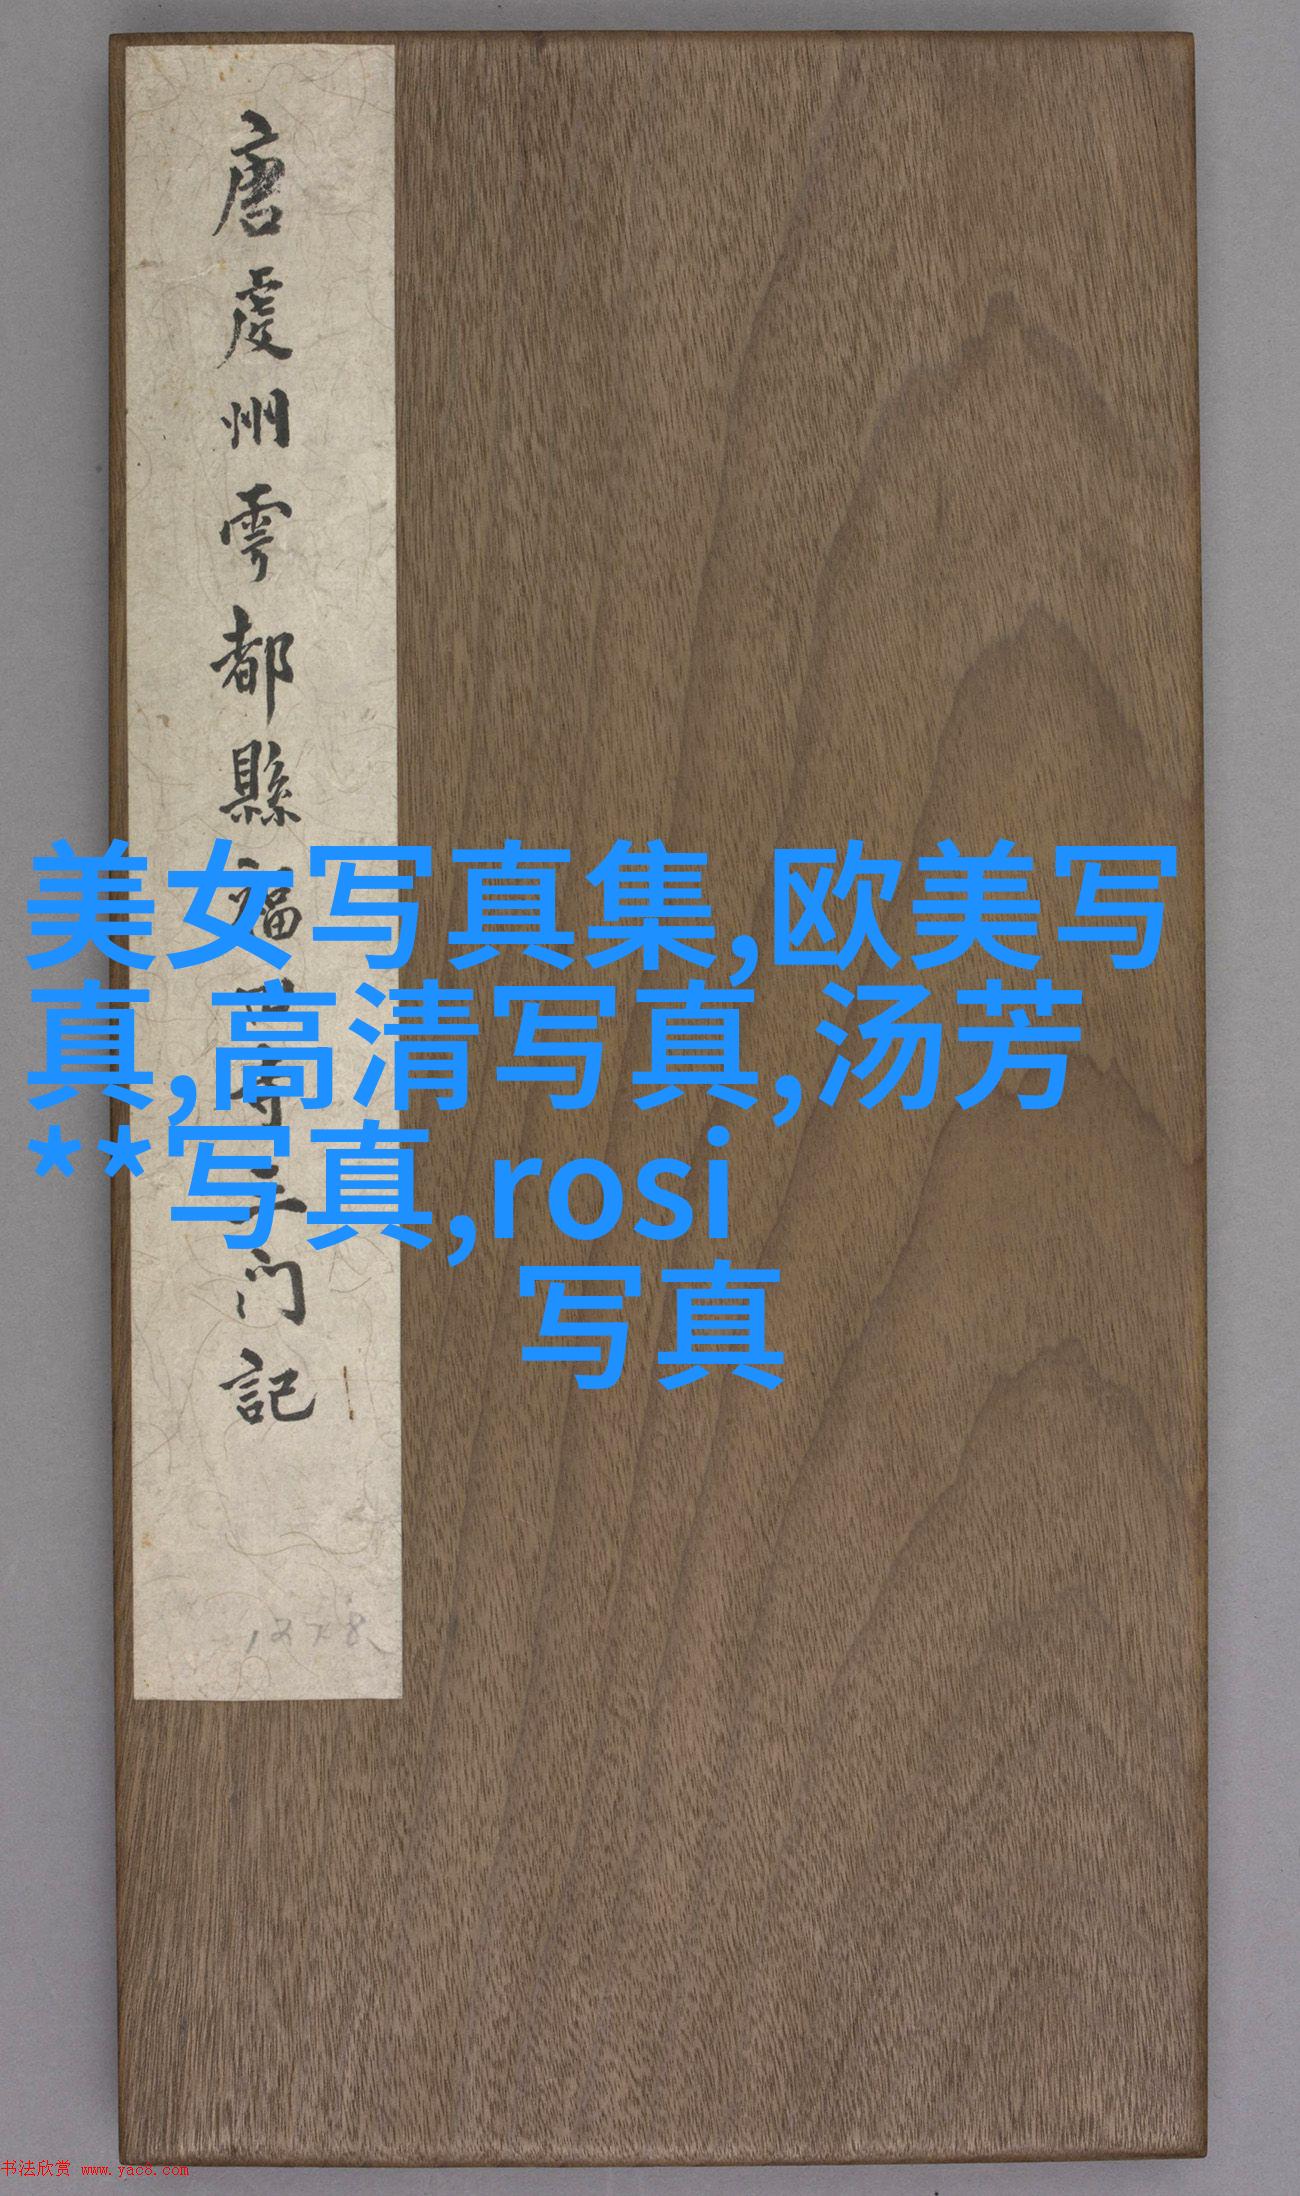 唐虔州雩都縣福门記
美女写真集,欧美写
真,高清写真,汤芳
**写真,rosi
写真
书法欣赏 www.yac8.com